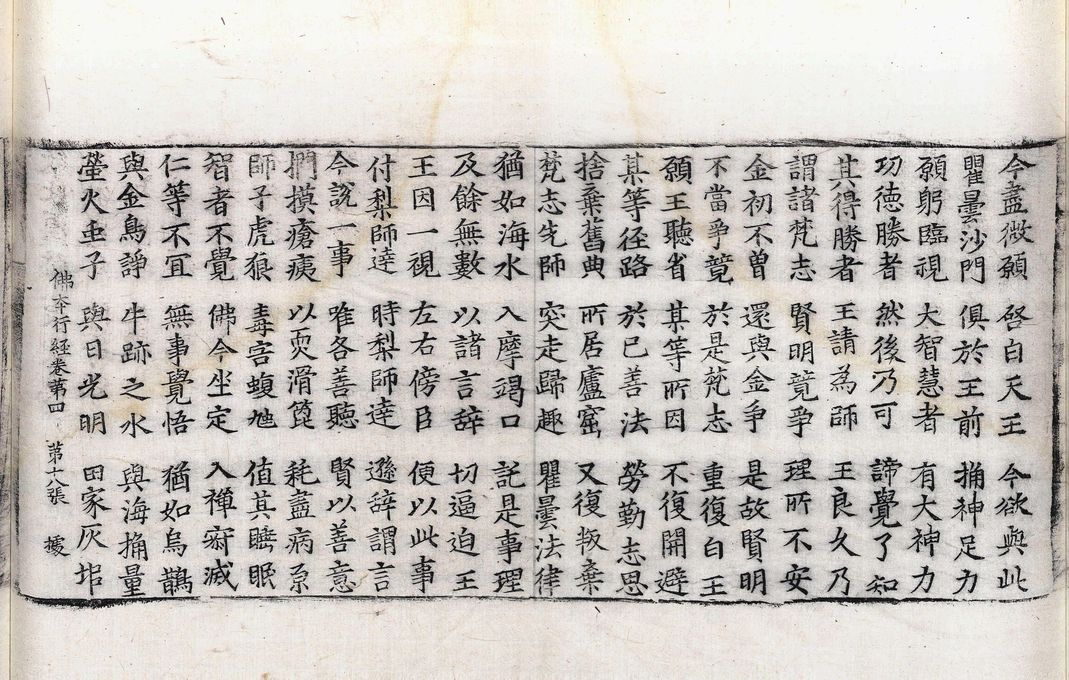 今盡微願 啓白天王 今欲與此
瞿曇沙門 俱於王前 捔神足力
願躬臨視 大智慧者 有大神力
功德勝者 然後乃可 諦覺了知
其得勝者 王請為師 王良久乃
謂諸梵志 賢明竟爭 理所不安
金初不曾 還與金爭 是故賢明
不當爭競 於是梵志 重復白王
願王聽省 某等所因 不復開避
某等径路 於己善法 勞勤志思
捨棄舊典 所居廬窟 又復叛棄
梵志先師 突走歸趣 瞿曇法律
猶如海水 入摩竭口 託是事理
及餘無數 以諸言辞 切逼迫王
王因一視 左右傍臣 便以此事
付梨師達 時梨師達 遜辞謂言
今說一事 唯各善聽 賢以善意
捫摸瘡痍 以㷟滑箆 耗盡病原
師子虎狼 毒害蝮虵 值其睡眠
智者不覺 佛今坐定 入禪寂滅
仁等不冝 無事覺悟 猶如烏鵲
與金鳥諍 牛跡之水 與海捔量
螢火虫子 與日光明 田家灰堆
佛本行経卷第四 第十八張 據